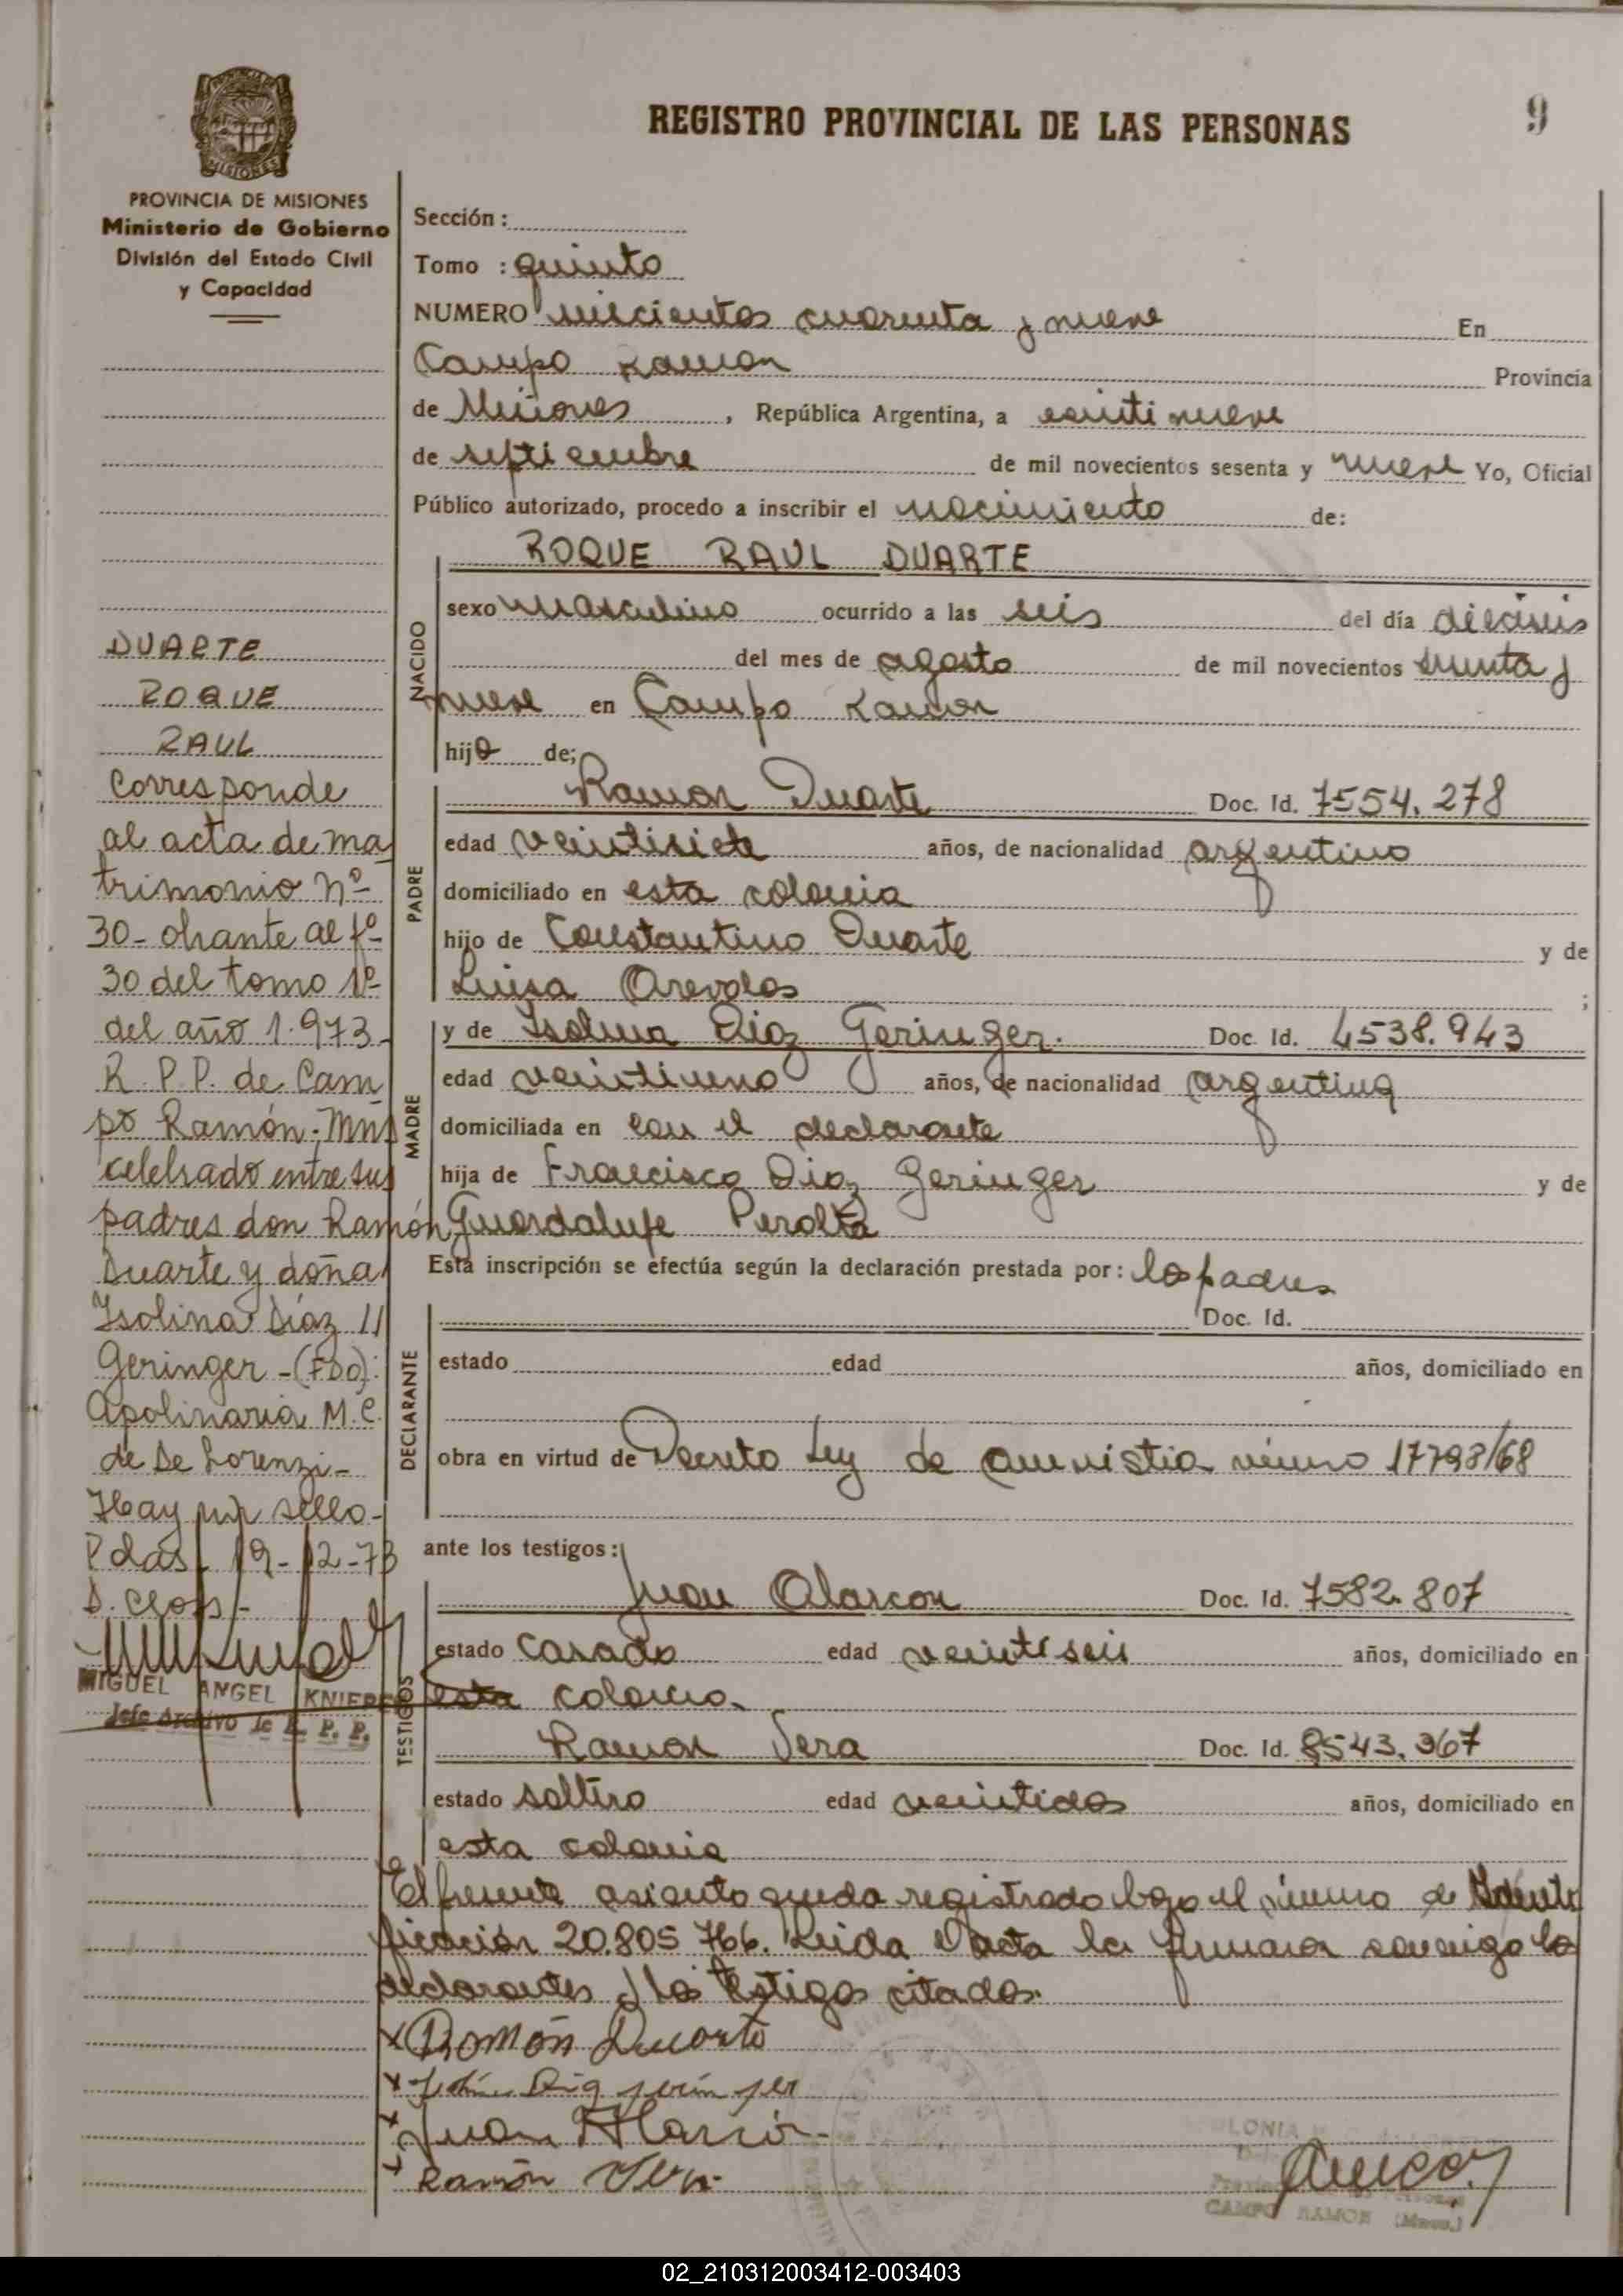 REGISTRO PROVINCIAL DE LAS PERSONAS
9
PROVINCIA DE MISIONES
MISIONES
PROVINCIA DE MISIONES
Ministerio de Gobierno
División del Estado Civil
y Capacidad
DUARTE
ROQUE
RAUL
Corresponde
al acta de ma
trimonio nº
30- obrante al fº
30 del tomo 1º
del año 1.973-
R.P.P. de Cam
po Ramón-Mns
celebrado entre sus
padres don Ramón
Duarte y doña
Isolina Díaz
Geringer-(FDO):
Apolinaria M.C.
de De Lorenzi-
Hay un sello-
Pdas 19-12-73
MIGUEL ANGEL KNIEP
Jefe Archivo R. P. P.
Sección:
Tomo : quinto
NUMERO cuarenta y nueve En
Campo Ramon Provincia
de Misiones, República Argentina, a veintinueve
de septiembre de mil novecientos sesenta y nueve Yo, Oficial
Público autorizado, procedo a inscribir el nacimiento de:
ROQUE RAUL DUARTE
NACIDO
sexo masculino ocurrido a las seis del día dieciseis
del mes de agosto de mil novecientos y
nueve en Campo Ramon
hijo de;
PADRE
Ramon Duarte Doc. Id. 7554.278
edad veintisiete años, de nacionalidad argentino
domiciliado en esta colonia
hijo de Constantino Duarte y de
Luisa Arevalos ;
MADRE
y de Isolina Diaz Geringer. Doc. Id. 4538.943
edad veintiuno años, de nacionalidad argentina
domiciliada en con el declarante
hija de Francisco Diaz Geringer y de
Guardalupe Peralta
Esta inscripción se efectúa según la declaración prestada por: los padres
DECLARANTE
Doc. Id.
estado edad años, domiciliado en
obra en virtud de Decreto Ley de amnistia número 17793/68
ante los testigos:
TESTIGOS
Juan Alarcon Doc. Id. 7582.807
estado casado edad veintiseis años, domiciliado en
esta colonia
Ramon Vera Doc. Id. 8543.367
estado soltero edad veintidos años, domiciliado en
esta colonia
El presente asiento queda registrado bajo el número de Identi
ficación 20.805 766. Leida el acta la firman conmigo los
declarantes y los testigos citados.
x Ramón Duarte
x Diaz
x Juan Alarcón
x Ramón Vera
COLONIA
CAMPO RAMON (Mnes.)
02_210312003412-003403